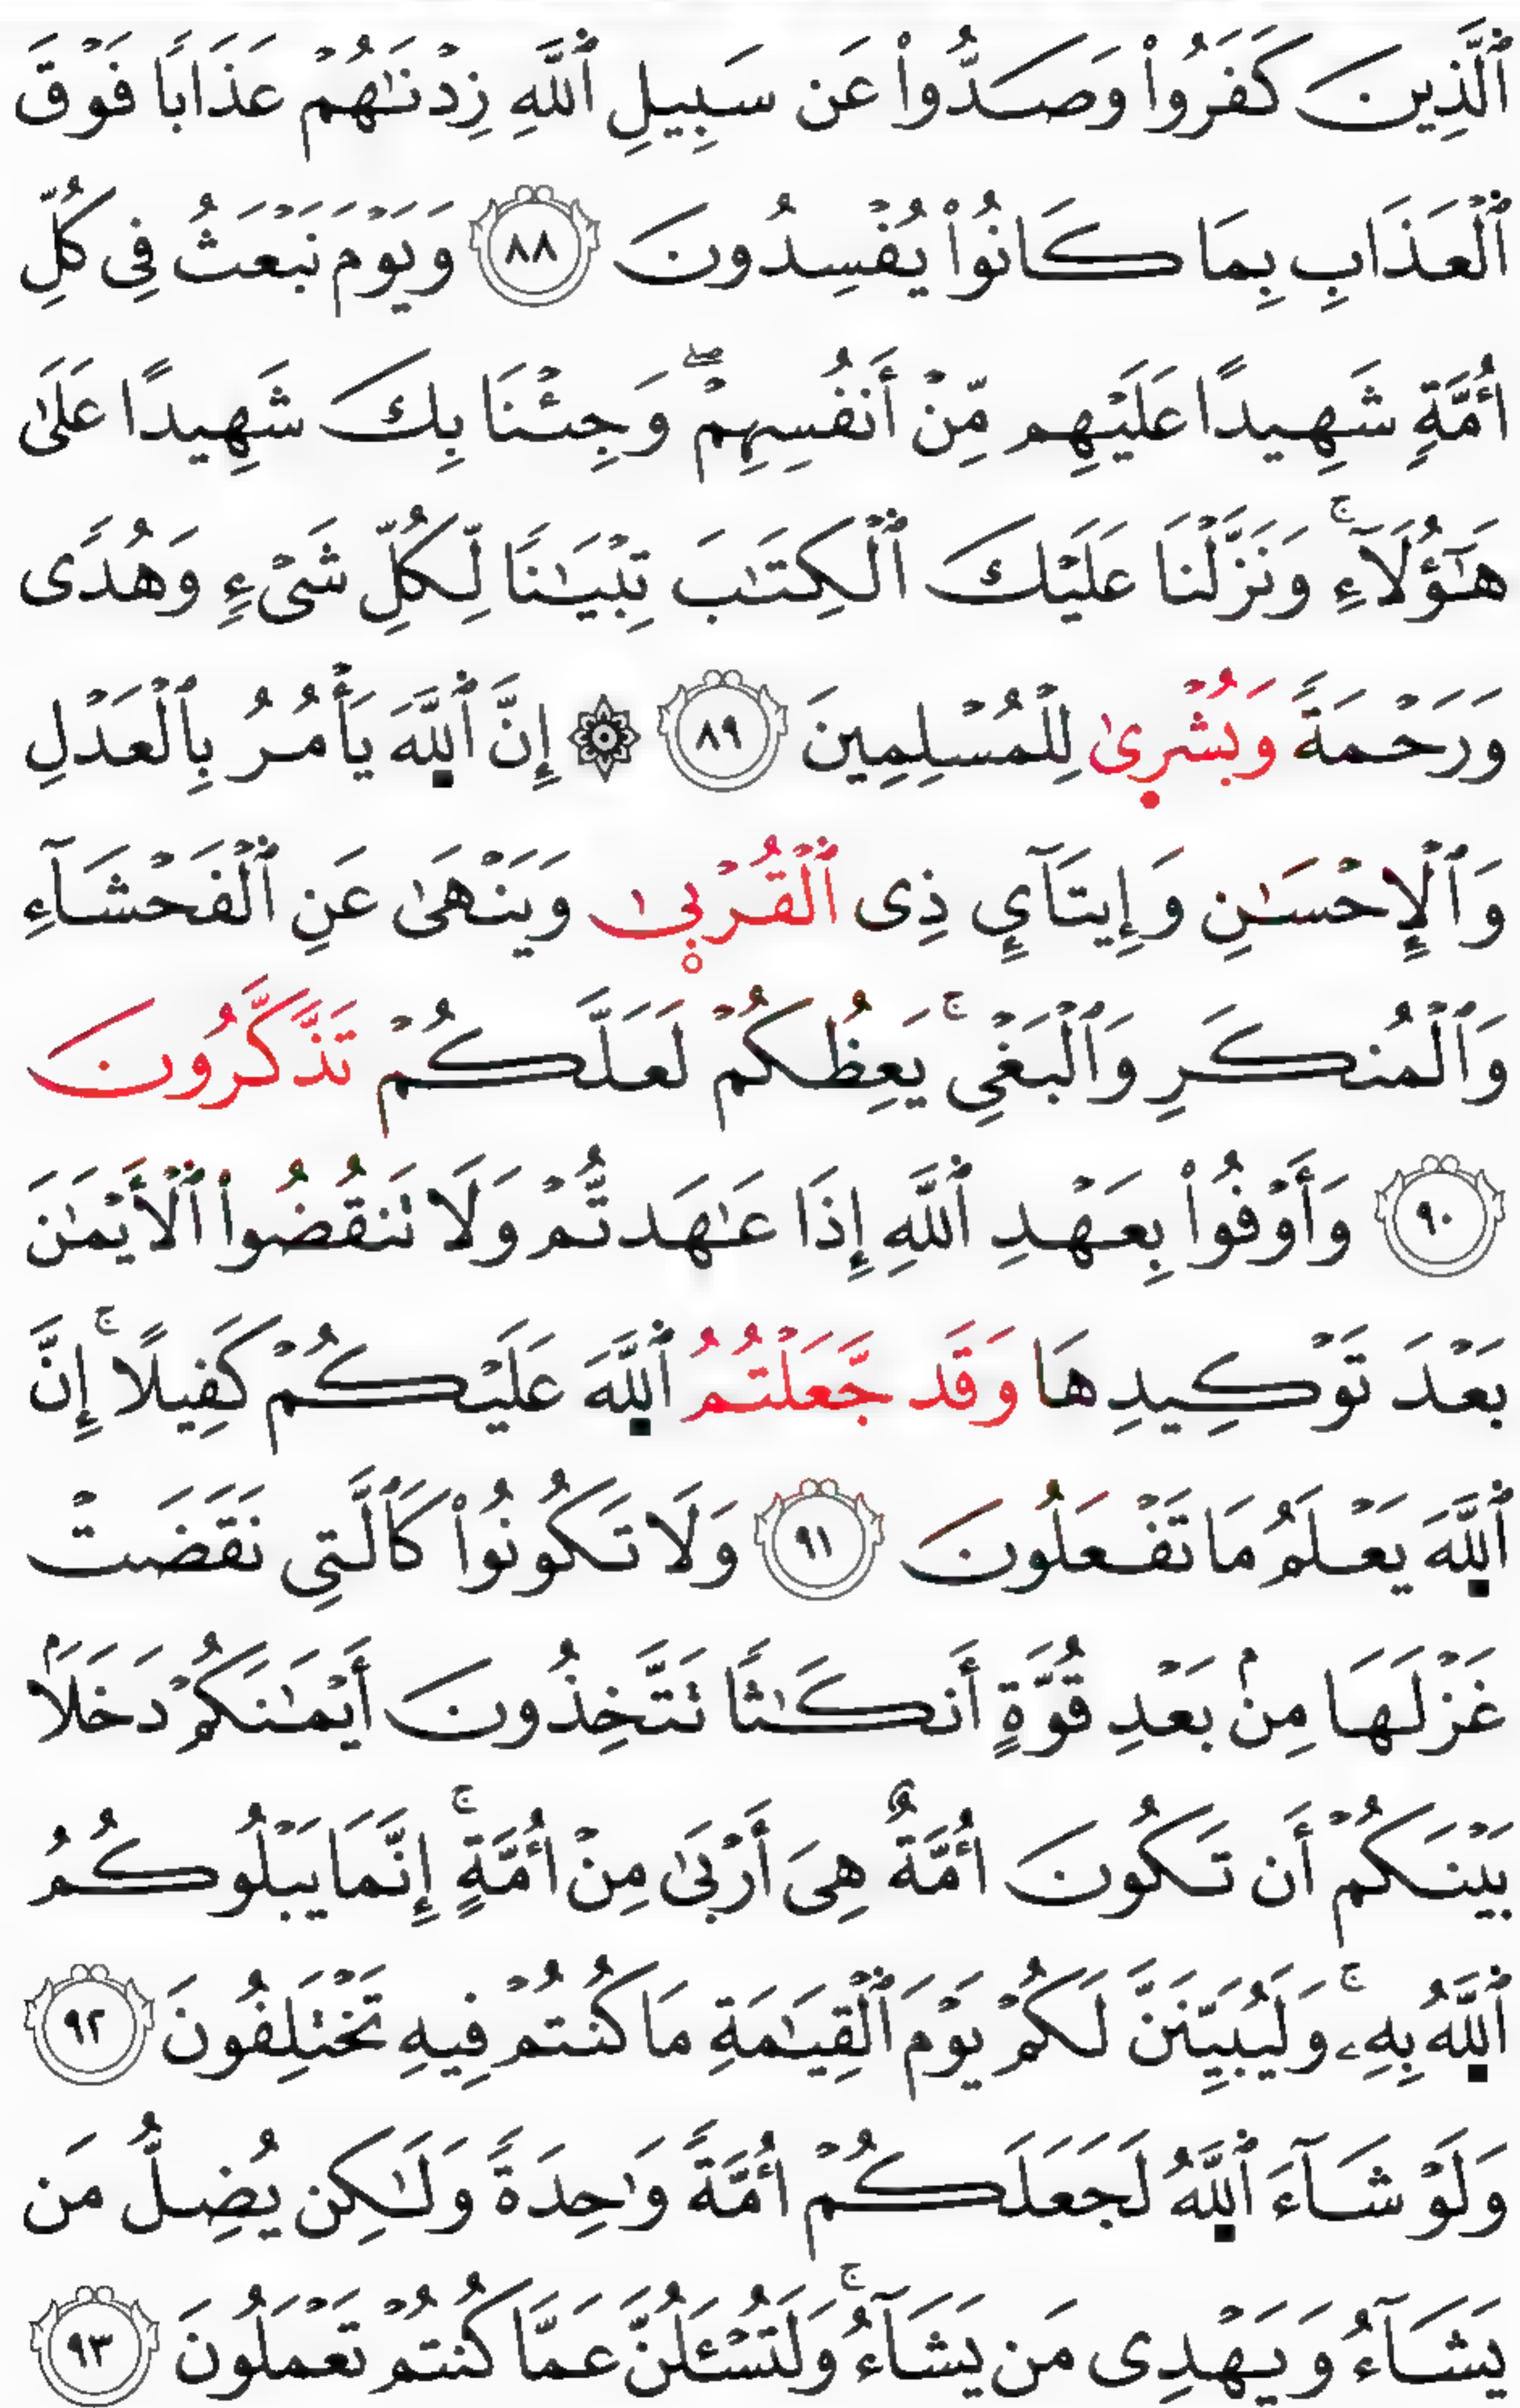 ٱلَّذِينَ كَفَرُوا۟ وَصَدُّوا۟ عَن سَبِيلِ ٱللَّهِ زِدْنَٰهُمْ عَذَابًا فَوْقَ
ٱلْعَذَابِ بِمَا كَانُوا۟ يُفْسِدُونَ ٨٨ وَيَوْمَ نَبْعَثُ فِى كُلِّ
أُمَّةٍ شَهِيدًا عَلَيْهِم مِّنْ أَنفُسِهِمْ ۖ وَجِئْنَا بِكَ شَهِيدًا عَلَىٰ
هَٰٓؤُلَآءِ ۚ وَنَزَّلْنَا عَلَيْكَ ٱلْكِتَٰبَ تِبْيَٰنًا لِّكُلِّ شَىْءٍ وَهُدًى
وَرَحْمَةً وَبُشْرٜىٰ لِلْمُسْلِمِينَ ٨٩ ۞ إِنَّ ٱللَّهَ يَأْمُرُ بِٱلْعَدْلِ
وَٱلْإِحْسَٰنِ وَإِيتَآئِ ذِى ٱلْقُرْبٜىٰ وَيَنْهَىٰ عَنِ ٱلْفَحْشَآءِ
وَٱلْمُنكَرِ وَٱلْبَغْىِ ۚ يَعِظُكُمْ لَعَلَّكُمْ تَذَّكَّرُونَ
٩٠ وَأَوْفُوا۟ بِعَهْدِ ٱللَّهِ إِذَا عَٰهَدتُّمْ وَلَا تَنقُضُوا۟ ٱلْأَيْمَٰنَ
بَعْدَ تَوْكِيدِهَا وَقَد جَّعَلْتُمُ ٱللَّهَ عَلَيْكُمْ كَفِيلًا ۚ إِنَّ
ٱللَّهَ يَعْلَمُ مَا تَفْعَلُونَ ٩١ وَلَا تَكُونُوا۟ كَٱلَّتِى نَقَضَتْ
غَزْلَهَا مِنۢ بَعْدِ قُوَّةٍ أَنكَٰثًا تَتَّخِذُونَ أَيْمَٰنَكُمْ دَخَلًۢا
بَيْنَكُمْ أَن تَكُونَ أُمَّةٌ هِىَ أَرْبَىٰ مِنْ أُمَّةٍ ۚ إِنَّمَا يَبْلُوكُمُ
ٱللَّهُ بِهِۦ ۚ وَلَيُبَيِّنَنَّ لَكُمْ يَوْمَ ٱلْقِيَٰمَةِ مَا كُنتُمْ فِيهِ تَخْتَلِفُونَ ٩٢
وَلَوْ شَآءَ ٱللَّهُ لَجَعَلَكُمْ أُمَّةً وَٰحِدَةً وَلَٰكِن يُضِلُّ مَن
يَشَآءُ وَيَهْدِى مَن يَشَآءُ ۚ وَلَتُسْـَٔلُنَّ عَمَّا كُنتُمْ تَعْمَلُونَ ٩٣